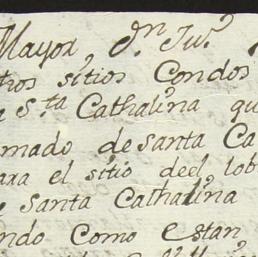 Mayor, Dn Ju.
tros sitios Condos
Sta Cathalina qu
mado de santa Ca
ara el sitio deel lob
santa Cathalina
ndo Como estan